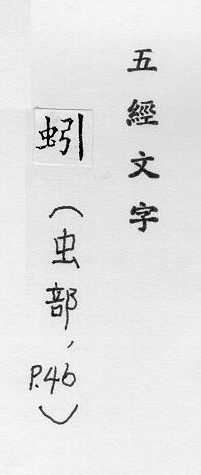 五經文字
蚓
（虫部，P.46）